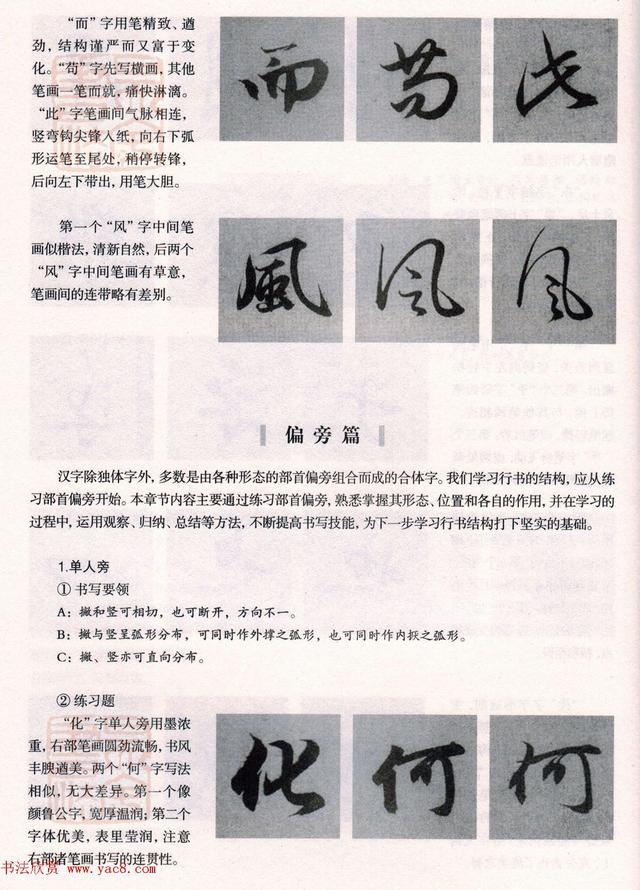 “而”字用笔精致、遒
劲，结构谨严而又富于变
化。“苟”字先写横画，其他
笔画一笔而就，痛快淋漓。
“此”字笔画间气脉相连，
竖弯钩尖锋入纸，向右下弧
形运笔至尾处，稍停转锋，
后向左下带出，用笔大胆。
而 苟 此
第一个“风”字中间笔
画似楷法，清新自然，后两个
“风”字中间笔画有草意，
笔画间的连带略有差别。
風 风 风
偏旁篇
汉字除独体字外，多数是由各种形态的部首偏旁组合而成的合体字。我们学习行书的结构，应从练
习部首偏旁开始。本章节内容主要通过练习部首偏旁，熟悉掌握其形态、位置和各自的作用，并在学习的
过程中，运用观察、归纳、总结等方法，不断提高书写技能，为下一步学习行书结构打下坚实的基础。
1.单人旁
① 书写要领
A：撇和竖可相切，也可断开，方向不一。
B：撇与竖呈弧形分布，可同时作外撑之弧形，也可同时作内抠之弧形。
C：撇、竖亦可直向分布。
② 练习题
“化”字单人旁用墨浓
重，右部笔画圆劲流畅，书风
丰腴遒美。两个“何”字写法
相似，无大差异。第一个像
颜鲁公字，宽厚温润；第二个
字体优美，表里莹润，注意
右部诸笔画书写的连贯性。
化 何 何
书法欣赏 www.yac8.com